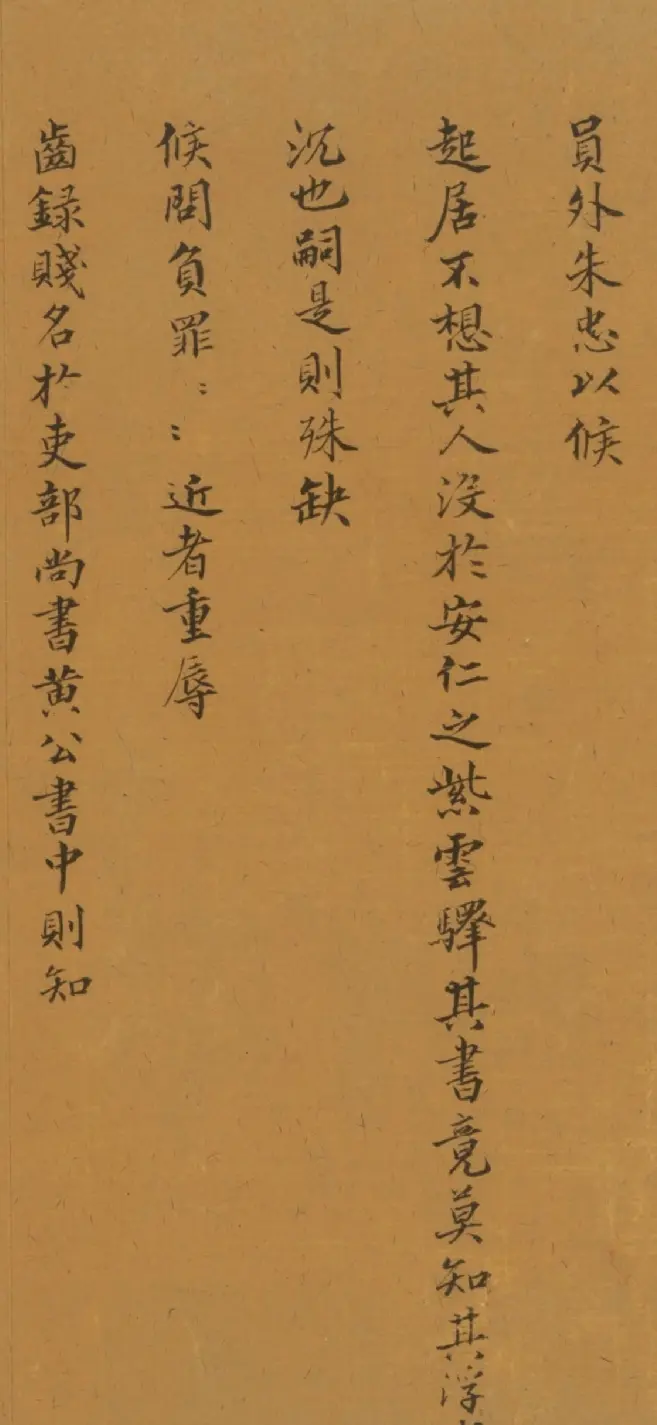 員外朱忠以候
起居不想其人沒於安仁之紫雲驛其書竟莫知其浮
沉也嗣是則殊缺
候問負罪〻〻近者重辱
齒録賤名於吏部尚書黃公書中則知